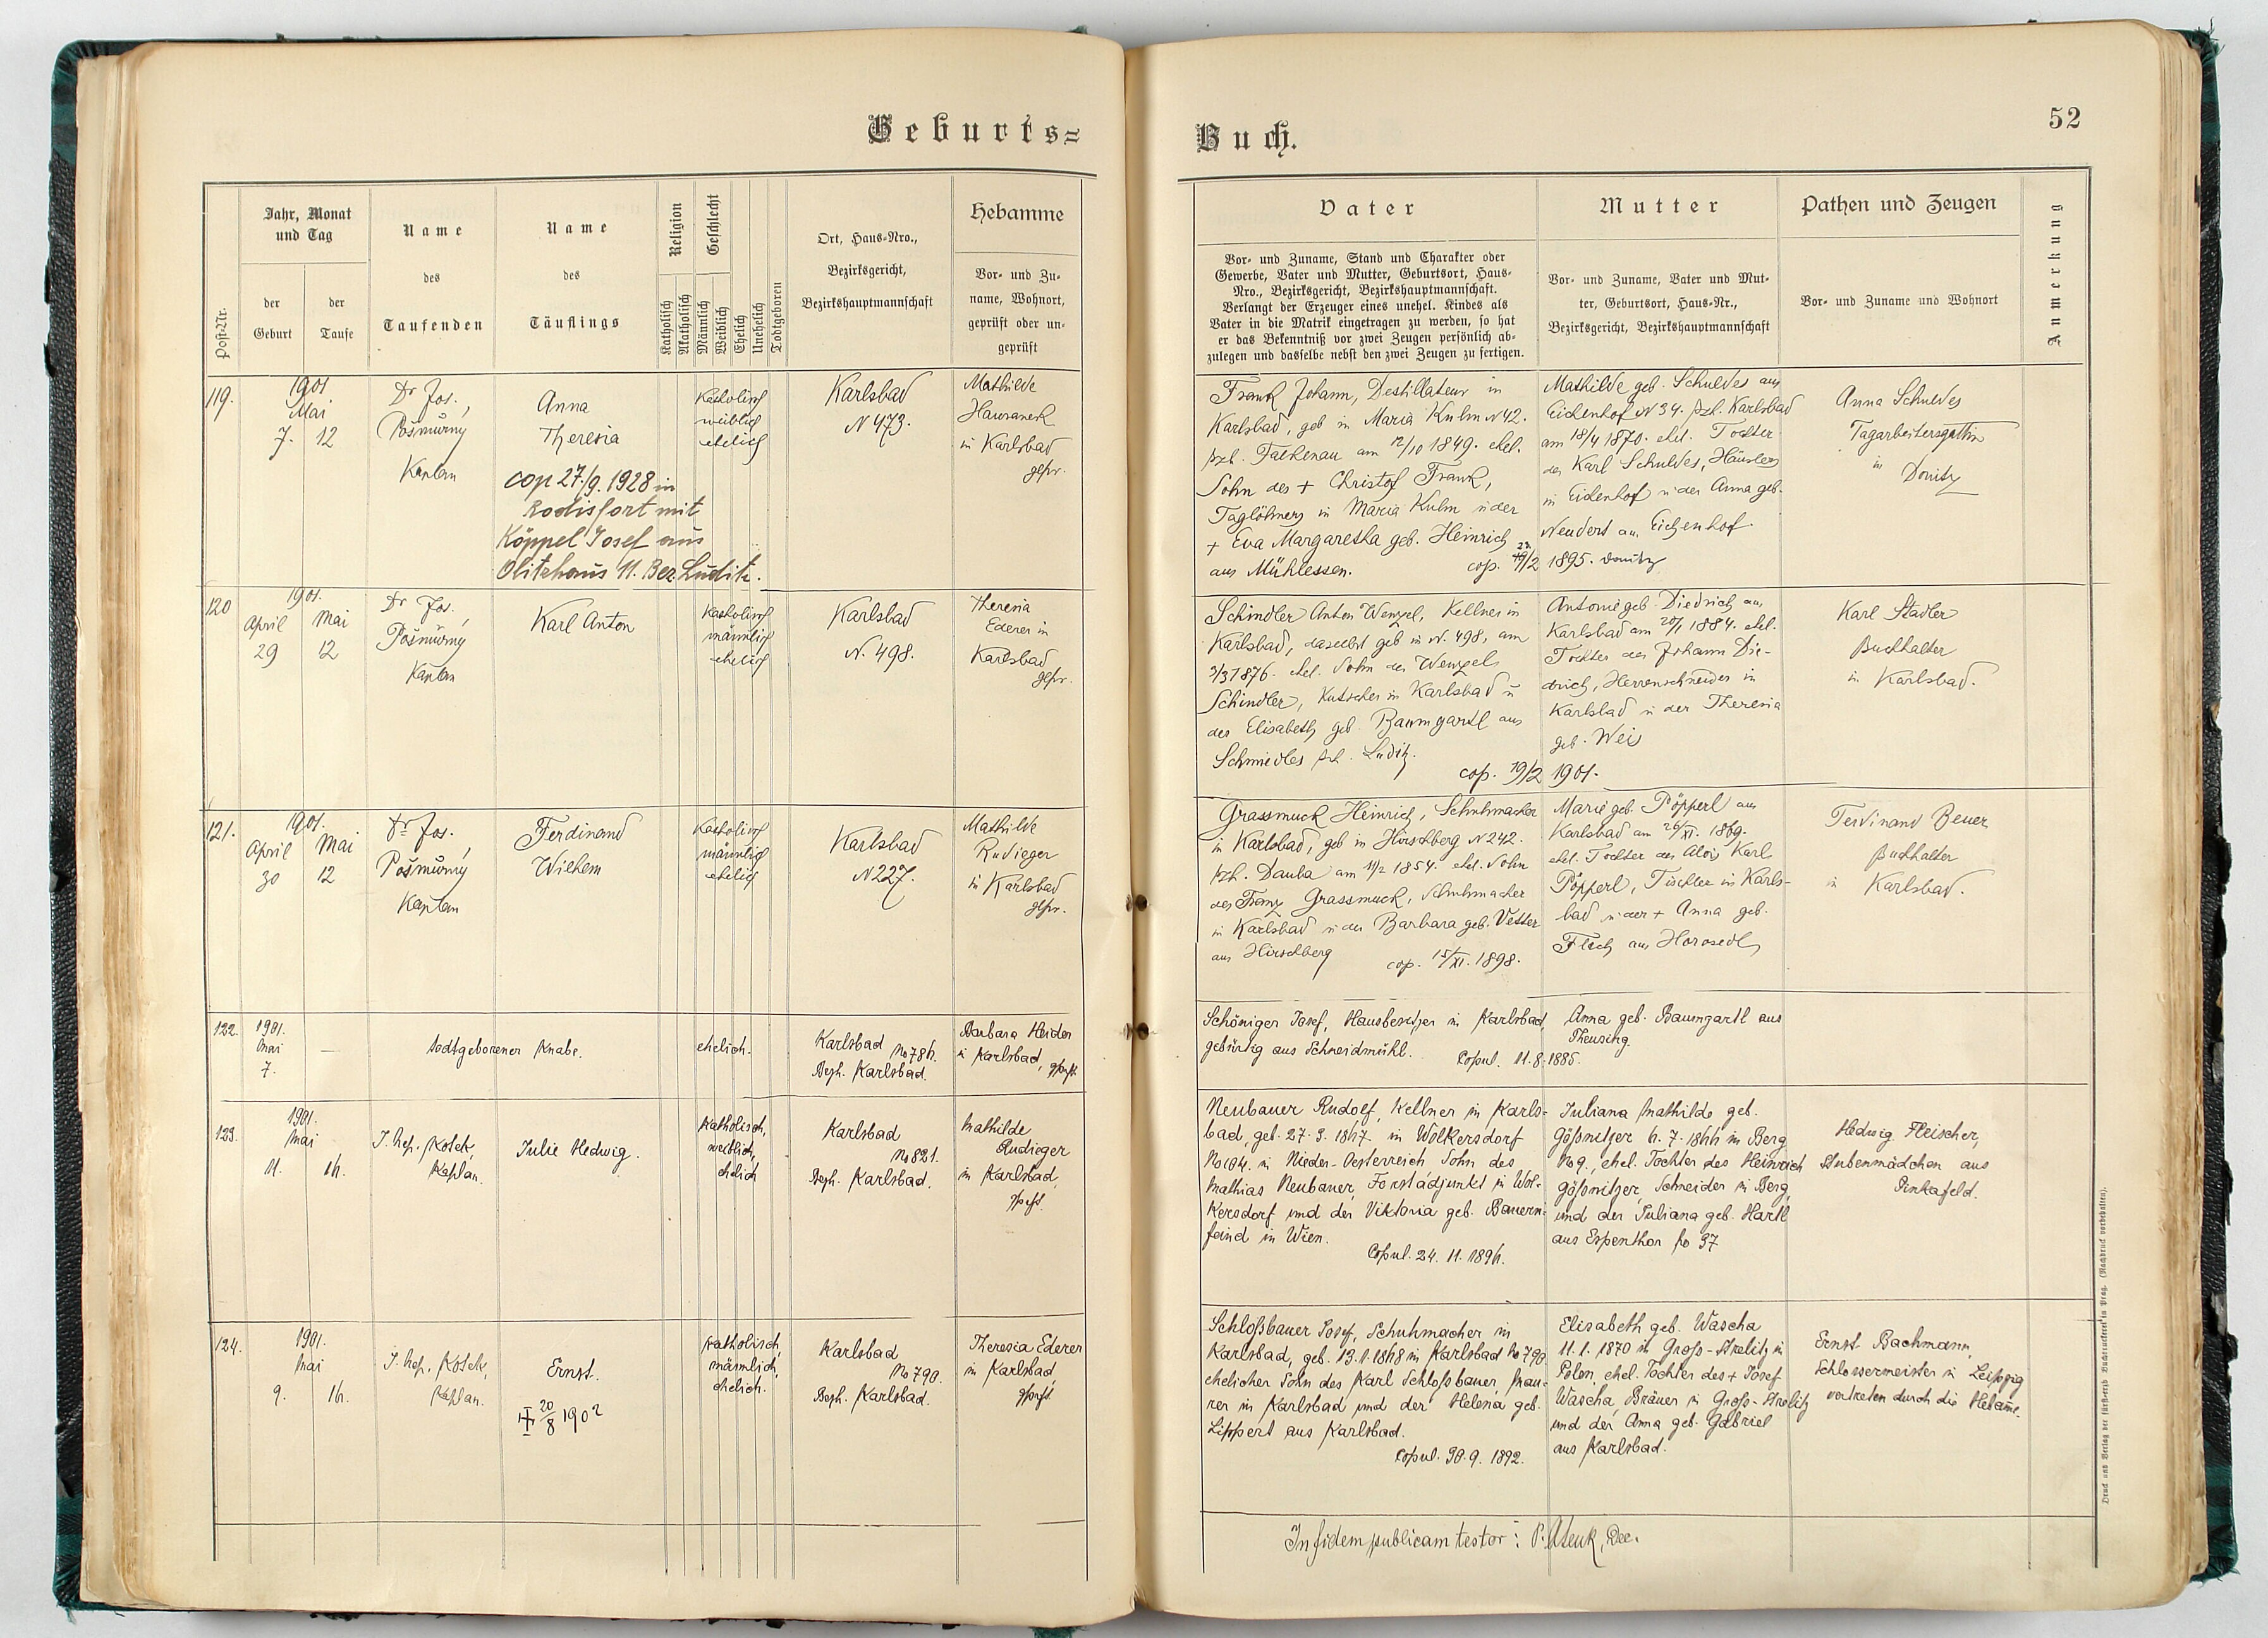 Geburts=
Buch.
52
Post-Nr.
Jahr, Monat
und Tag
der
Geburt
der
Taufe
Name
des
Taufenden
Name
des
Täuflings
Religion
Katholisch
Akatholisch
Geschlecht
Männlich
Weiblich
Ehelich
Unehelich
Todtgeboren
Ort, Haus-Nro.,
Bezirksgericht,
Bezirkshauptmannschaft
Hebamme
Vor- und Zu-
name, Wohnort,
geprüft oder un-
geprüft
Vater
Vor- und Zuname, Stand und Charakter oder
Gewerbe, Vater und Mutter, Geburtsort, Haus-
Nro., Bezirksgericht, Bezirkshauptmannschaft.
Verlangt der Erzeuger eines unehel. Kindes als
Vater in die Matrik eingetragen zu werden, so hat
er das Bekenntniß vor zwei Zeugen persönlich ab-
zulegen und dasselbe nebst den zwei Zeugen zu fertigen.
Mutter
Vor- und Zuname, Vater und Mut-
ter, Geburtsort, Haus-Nr.,
Bezirksgericht, Bezirkshauptmannschaft
Pathen und Zeugen
Vor- und Zuname und Wohnort
Anmerkung
119.
1901
Mai
7. 12
Dr Jos.
Pošmůrný
Kaplan
Anna
Theresia
cop 27./9. 1928 in
Rodisfort mit
Köppel Josef aus
Olitzhaus 11. Bez. Luditz.
Katholisch
weiblich
ehelich
Karlsbad
N 473.
Mathilde
Hawranek
in Karlsbad
gepr.
Frank Johann, Destillateur in
Karlsbad, geb in Maria Kulm N 42.
bzh. Falkenau am 12/10 1849. ehel.
Sohn des + Christof Frank,
Taglöhners in Maria Kulm u der
+ Eva Margaretha geb. Heinrich
aus Mühlessen. cop. /2 1895. Donitz
Mathilde geb. Schuldes aus
Eichenhof N 34. bzh. Karlsbad
am 18/4 1870. ehel. Tochter
des Karl Schuldes, Häuslers
in Eichenhof u der Anna geb.
Neudert aus Eichenhof.
Anna Schuldes
Tagarbeitersgattin
in Donitz
120
1901.
April Mai
29 12
Dr Jos.
Pošmůrný
Kaplan
Karl Anton
Katholisch
männlich
ehelich
Karlsbad
N. 498.
Theresia
Ederer in
Karlsbad
gepr.
Schindler Anton Wenzel, Kellner in
Karlsbad, daselbst geb in N. 498, am
3/3 1876. ehel. Sohn des Wenzel
Schindler, Kutscher in Karlsbad u
der Elisabeth geb. Baumgartl aus
Schmiedles bzh. Luditz.
cop. 19/2 1901.
Antonie geb. Diedrich aus
Karlsbad am 20/1 1884. ehel.
Tochter des Johann Die-
drich, Herrenschneider in
Karlsbad u der Theresia
geb. Weis
Karl Stadler
Buchhalter
in Karlsbad.
121.
1901.
April Mai
30 12
Dr Jos.
Pošmůrný
Kaplan
Ferdinand
Wilhelm
Katholisch
männlich
ehelich
Karlsbad
N 227.
Mathilde
Rudieger
in Karlsbad
gepr.
Grassmuck Heinrich, Schuhmacher
in Karlsbad, geb in Hirschberg N 242.
bzh. Dauba am 11/2 1854. ehel. Sohn
des Franz Grassmuck, Schuhmacher
in Karlsbad u der Barbara geb. Vetter
aus Hirschberg cop. 15/XI. 1898.
Marie geb. Pöpperl aus
Karlsbad am 26/XI. 1869.
ehel. Tochter des Alois Karl
Pöpperl, Tischler in Karls-
bad u der + Anna geb.
aus Horosedl
Ferdinand Beuer
Buchhalter
in Karlsbad.
122.
1901.
Mai
7. —
todtgeborener Knabe.
ehelich.
Karlsbad No 784.
Bezh. Karlsbad.
Barbara Heider
in Karlsbad, geprft.
Schöniger Josef, Hausbesitzer in Karlsbad,
gebürtig aus Schneidmühl. Copul. 11. 8. 1885.
Anna geb. Baumgartl aus
Theusing.
123.
1901.
Mai
11. 14.
J. Nep. Kosek,
Kaplan.
Julie Hedwig.
Katholisch,
weiblich,
ehelich
Karlsbad
No 821.
Bezh. Karlsbad.
Mathilde
Rudieger
in Karlsbad,
geprft.
Neubauer Rudolf, Kellner in Karls-
bad, geb. 27. 3. 1847. in Wolkersdorf
No 104. in Nieder-Oesterreich, Sohn des
Mathias Neubauer, Forstadjunkt in Wol-
kersdorf und der Viktoria geb. Bauern-
feind in Wien.
Copul. 24. 11. 1894.
Juliana Mathilde geb.
Gößnitzer 4. 7. 1844 in Berg
No 9., ehel. Tochter des Heinrich
Gößnitzer, Schneider in Berg,
und der Juliana geb. Hartl
aus Espenthor No 37
Hedwig Fleischer,
Stubenmädchen aus
Pinkafeld.
124.
1901.
Mai
9. 14.
J. Nep. Kosek,
Kaplan.
Ernst.
20/8 1902
Katholisch,
männlich,
ehelich.
Karlsbad
No 790.
Bezh. Karlsbad.
Theresia Ederer
in Karlsbad,
geprft.
Schloßbauer Josef, Schuhmacher in
Karlsbad, geb. 13. 1. 1848 in Karlsbad No 790
ehelicher Sohn des Karl Schloßbauer, Mau-
rer in Karlsbad und der Helena geb.
Lippert aus Karlsbad.
Copul. 30. 9. 1892.
Elisabeth geb. Wascha
11. 1. 1870 in Groß-Strelitz in
Polen, ehel. Tochter des + Josef
Wascha, Bräuer in Groß-Strelitz
und der Anna geb. Gabriel
aus Karlsbad.
Ernst Bachmann,
Schlossermeister in Leipzig
vertreten durch die Hebamme.
In fidem publicam testor: P. Dec.
Druck und Verlag der fürst-erzb. Buchdruckerei in Prag. (Nachdruck vorbehalten).